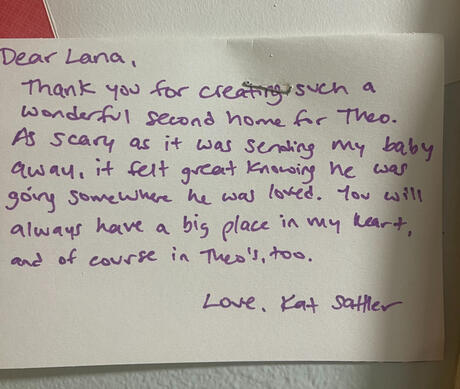 Dear Lana,
Thank you for creating such a
wonderful second home for Theo.
As scary as it was sending my baby
away, it felt great knowing he was
going somewhere he was loved. You will
always have a big place in my heart,
and of course in Theo's, too.
Love, Kat Sattler